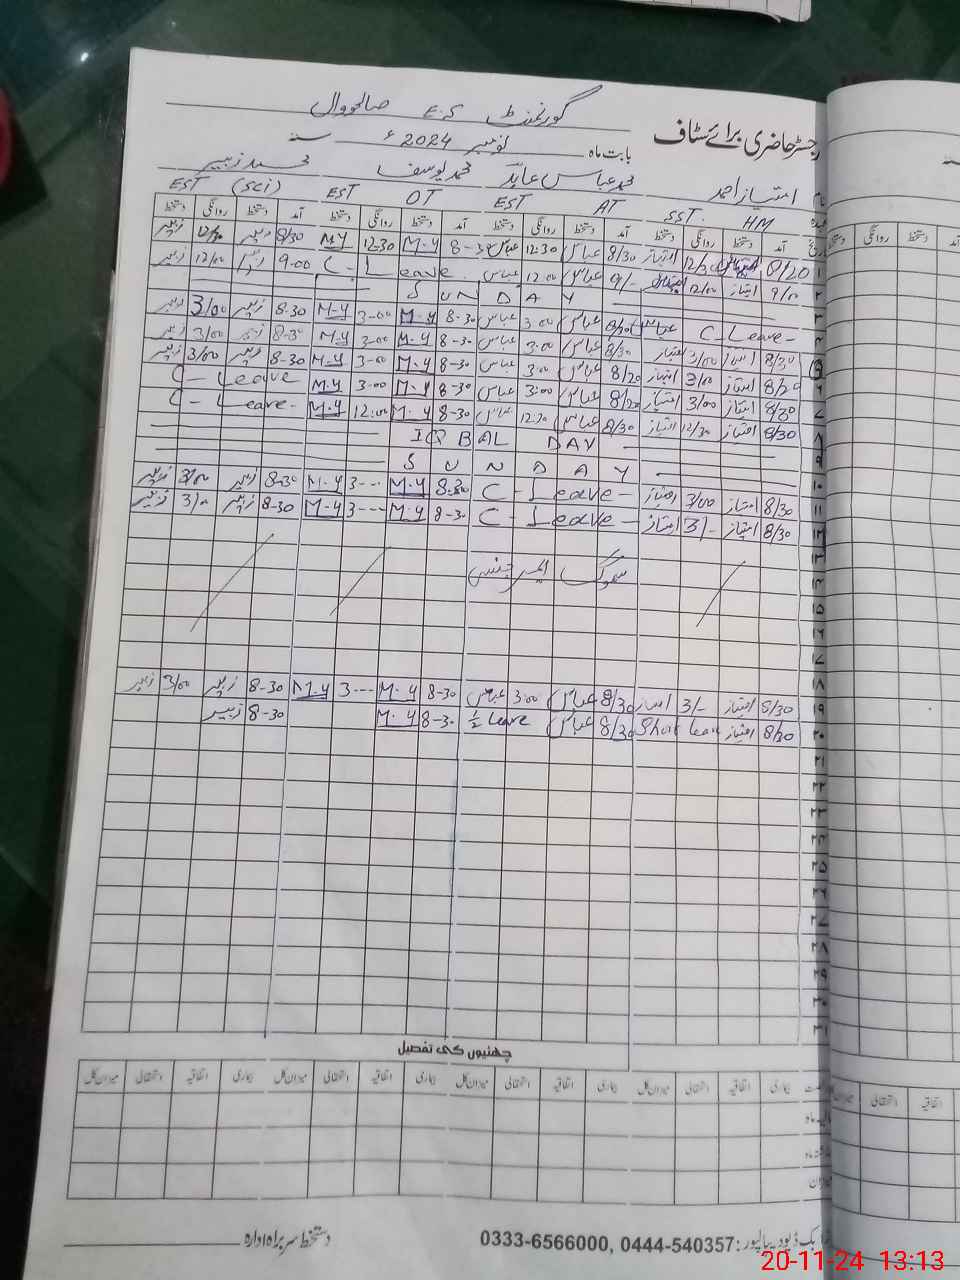 گورنمنٹ E.S صالحووال
رجسٹر حاضری برائے سٹاف
بابت ماہ نومبر 2024ء سنہ
امتیاز احمد محمد عباس عابد محمد یوسف محمد زبیر
HM SST. AT EST OT EST (Sci) EST
آمد دستخط روانگی دستخط آمد دستخط روانگی دستخط آمد دستخط روانگی دستخط آمد دستخط روانگی دستخط
۱ 8/20 امتیاز 12/30 امتیاز 8/30 عباس 12.30 عباس 8-30 M.Y 12-30 M.Y 8/30 زبیر 12/30 زبیر
۲ 9/00 امتیاز 12/00 امتیاز 9/- عباس 12.00 عباس C-Leave. 9.00 زبیر 12/00 زبیر
۳ SUNDAY
۴ C-Leave- عباس 8/30 عباس 3.00 عباس 8-30 M.Y 3-00 M-Y 8.30 زبیر 3/00 زبیر
۵ 8/30 امتیاز 3/00 امتیاز 8/30 عباس 3.00 عباس 8-30 M.Y 3.00 M.Y 8-30 زبیر 3/00 زبیر
۶ 8/20 امتیاز 3/00 امتیاز 8/20 عباس 3.00 عباس 8-30 M.Y 3-00 M-Y 8-30 زبیر 3/00 زبیر
۷ 8/30 امتیاز 3/00 امتیاز 8/20 عباس 3.00 عباس 8-30 M.Y 3.00 M.Y C-Leave
۸ 8/30 امتیاز 12/30 امتیاز 8/30 عباس 12.30 عباس 8-30 M.Y 12:00 M.Y C-Leave-
۹ IQBAL DAY
۱۰ SUNDAY
۱۱ 8/30 امتیاز 3/00 امتیاز C-Leave- 8-30 M.Y 3--- M-Y 8-30 زبیر 3/00 زبیر
۱۲ 8/30 امتیاز 3/- امتیاز C-Leave- 8-30 M-Y 3--- M-Y 8-30 زبیر 3/00 زبیر
۱۳
۱۴ سموگ ایمرجنسی
۱۵
۱۶
۱۷
۱۸
۱۹ 8/30 امتیاز 3/- امتیاز 8/30 عباس 3.00 عباس 8-30 M-Y 3--- M-Y 8-30 زبیر 3/00 زبیر
۲۰ 8/30 امتیاز Short leave 8/30 عباس ½ leave 8-30 M.Y 8-30 زبیر
۲۱
۲۲
۲۳
۲۴
۲۵
۲۶
۲۷
۲۸
۲۹
۳۰
۳۱
چھٹیوں کی تفصیل
بیماری اتفاقیہ استحقاقی میزان کل بیماری اتفاقیہ استحقاقی میزان کل بیماری اتفاقیہ استحقاقی میزان کل بیماری اتفاقیہ استحقاقی میزان کل
بک ڈپو دیپالپور: 0333-6566000, 0444-540357
دستخط سربراہ ادارہ
20-11-24 13:13